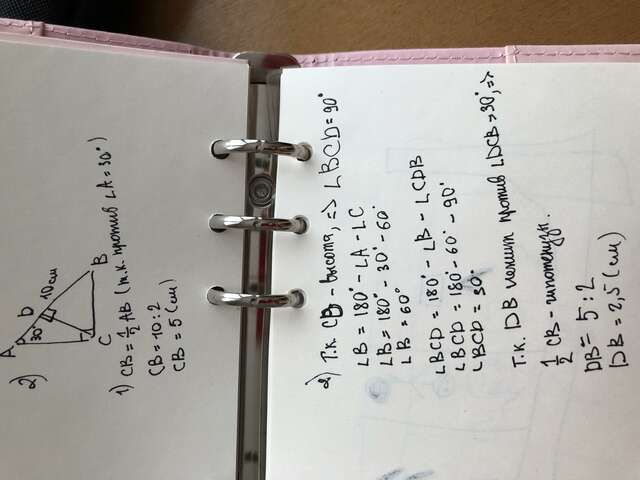 2)
A
D
30°
10 см
C
B
1) CB = 1/2 AB (т.к. против ∠A = 30°)
CB = 10 : 2
CB = 5 (см)
2) Т.к. CD - высота, => ∠BCD = 90°
∠B = 180° - ∠A - ∠C
∠B = 180° - 30° - 60°
∠B = 60°
∠BCD = 180° - ∠B - ∠CDB
∠BCD = 180° - 60° - 90°
∠BCD = 30°
Т.к. DB лежит против ∠DCB = 30°, =>
1/2 CB - гипотенузы.
DB = 5 : 2
DB = 2,5 (см)